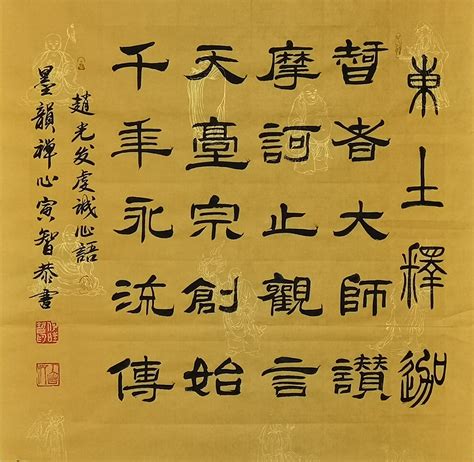 東土釋迦
智者大師讚
摩訶止觀言
天臺宗創始
千年永流傳
趙光发虔誠心語
墨韻禪心寅智恭書